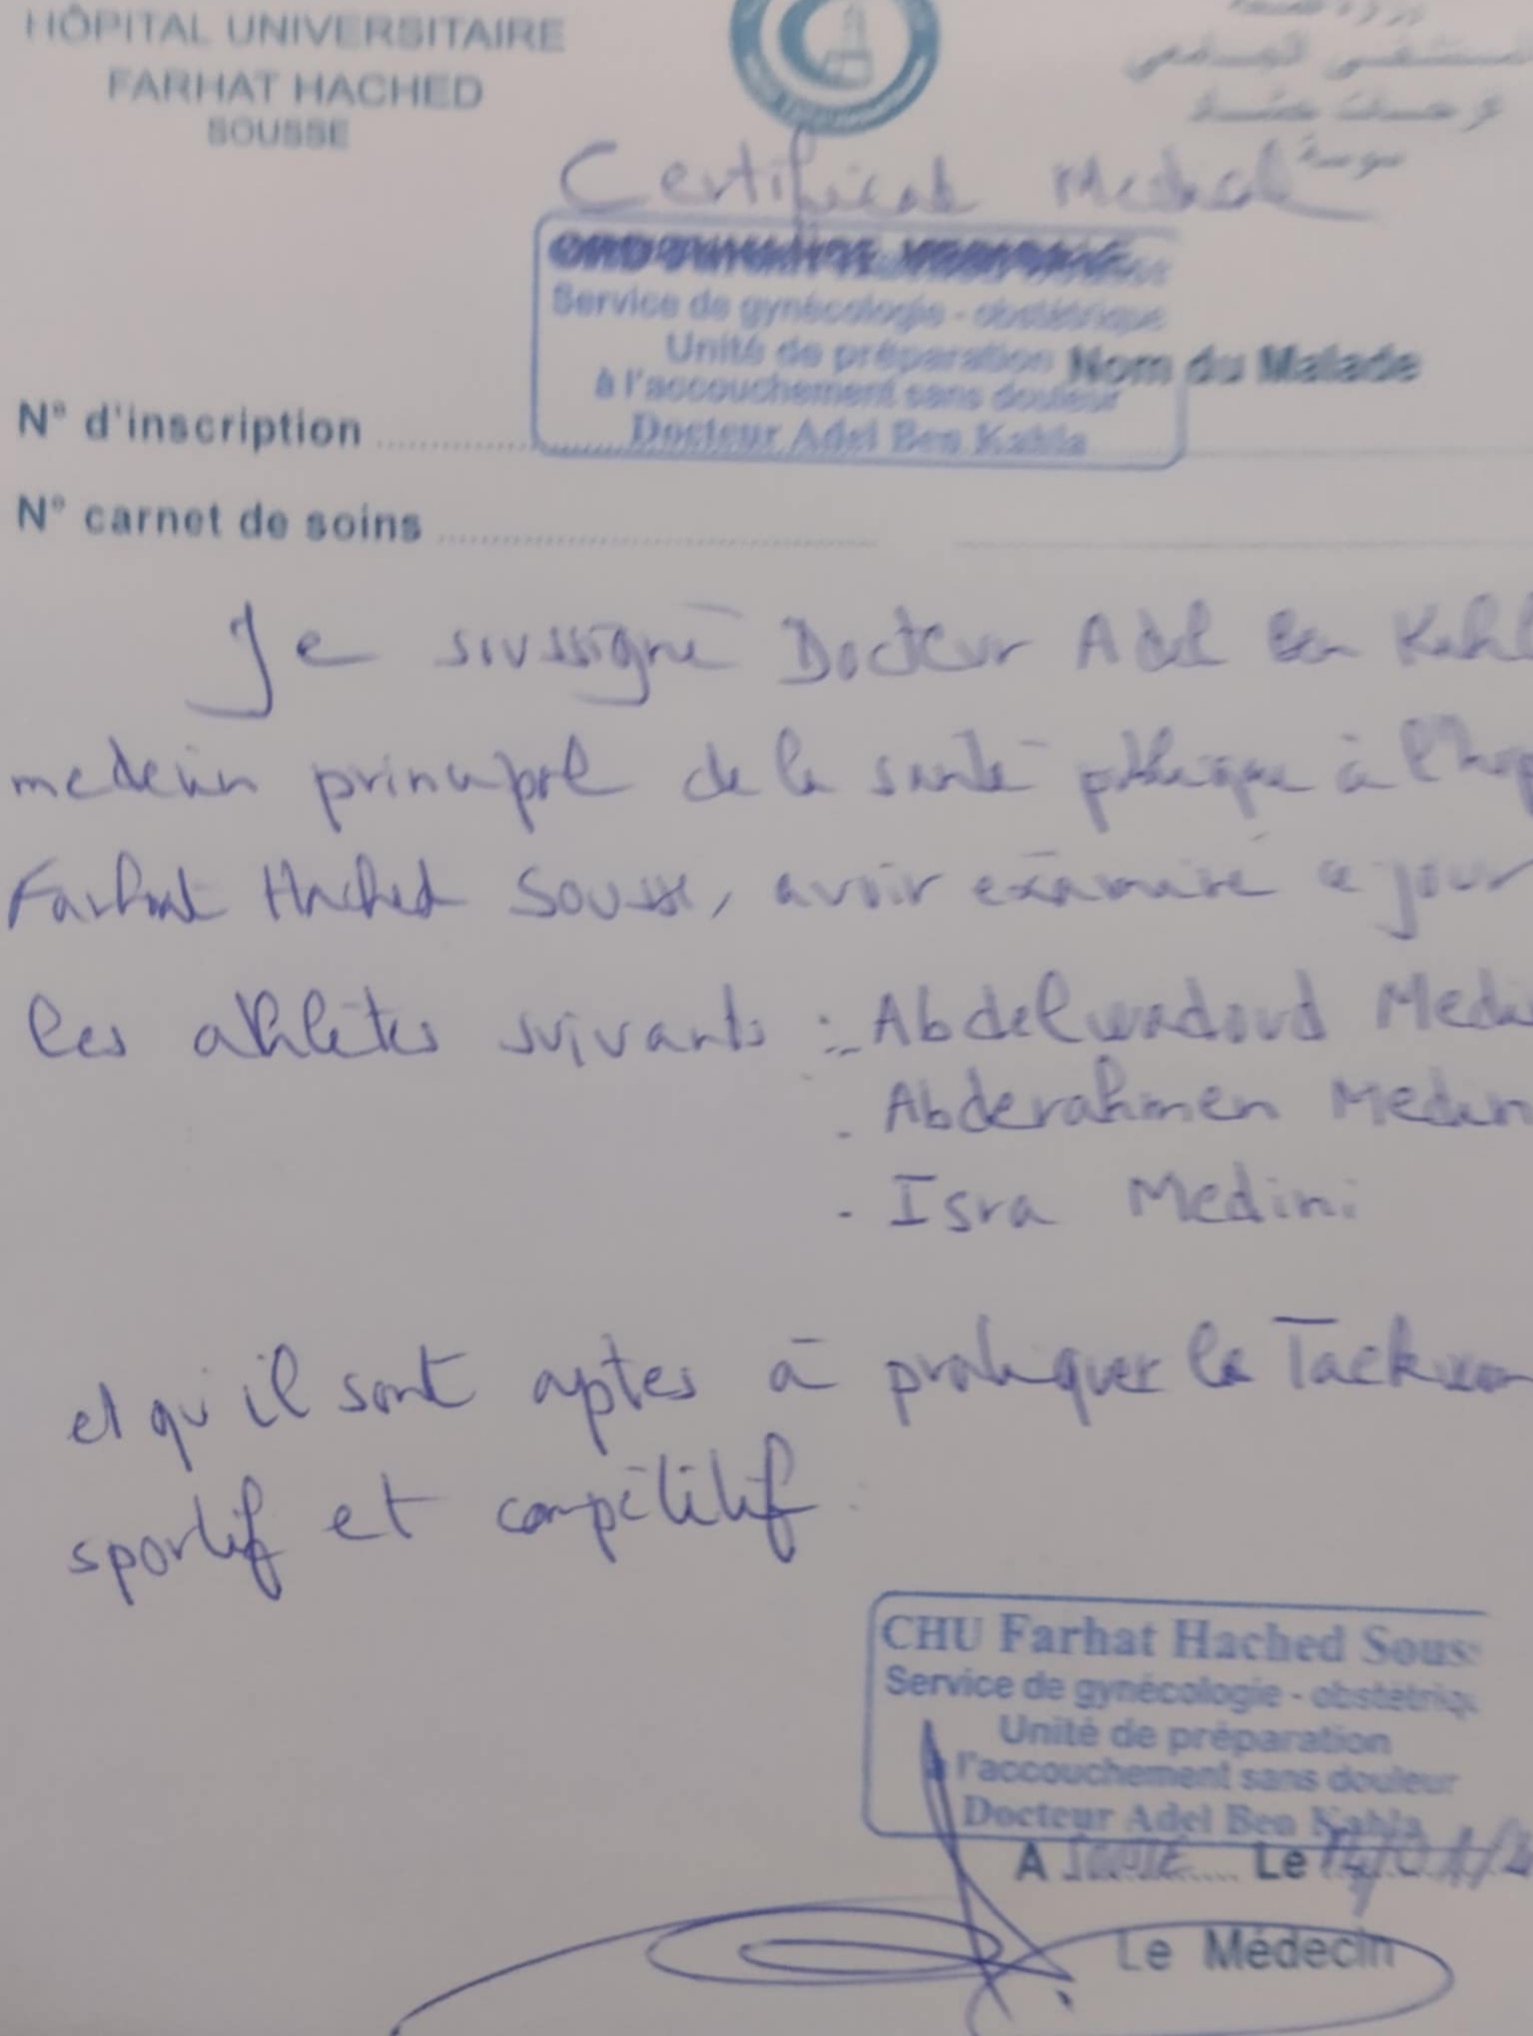 HÔPITAL UNIVERSITAIRE
FARHAT HACHED
SOUSSE
سوسة
Certificat Medical
Service de gynécologie - obstétrique
Unité de préparation
à l'accouchement sans douleur
Docteur Adel Ben Kahla
Nom du Malade
N° d'inscription
N° carnet de soins
Je soussigné Docteur Adel Ben Kahl
medecin principal de la santé publique à l'hop
Farhat Hached Sousse, avoir examiné ce jour
les athlètes suivants : - Abdelwadoud Medi
- Abderahmen Medin
- Isra Medini
et qu'il sont aptes à pratiquer le Tackwon
sportif et compétitif
CHU Farhat Hached Sous
Service de gynécologie - obstétriq
Unité de préparation
à l'accouchement sans douleur
Docteur Adel Ben Kahla
A Sousse Le
Le Médecin